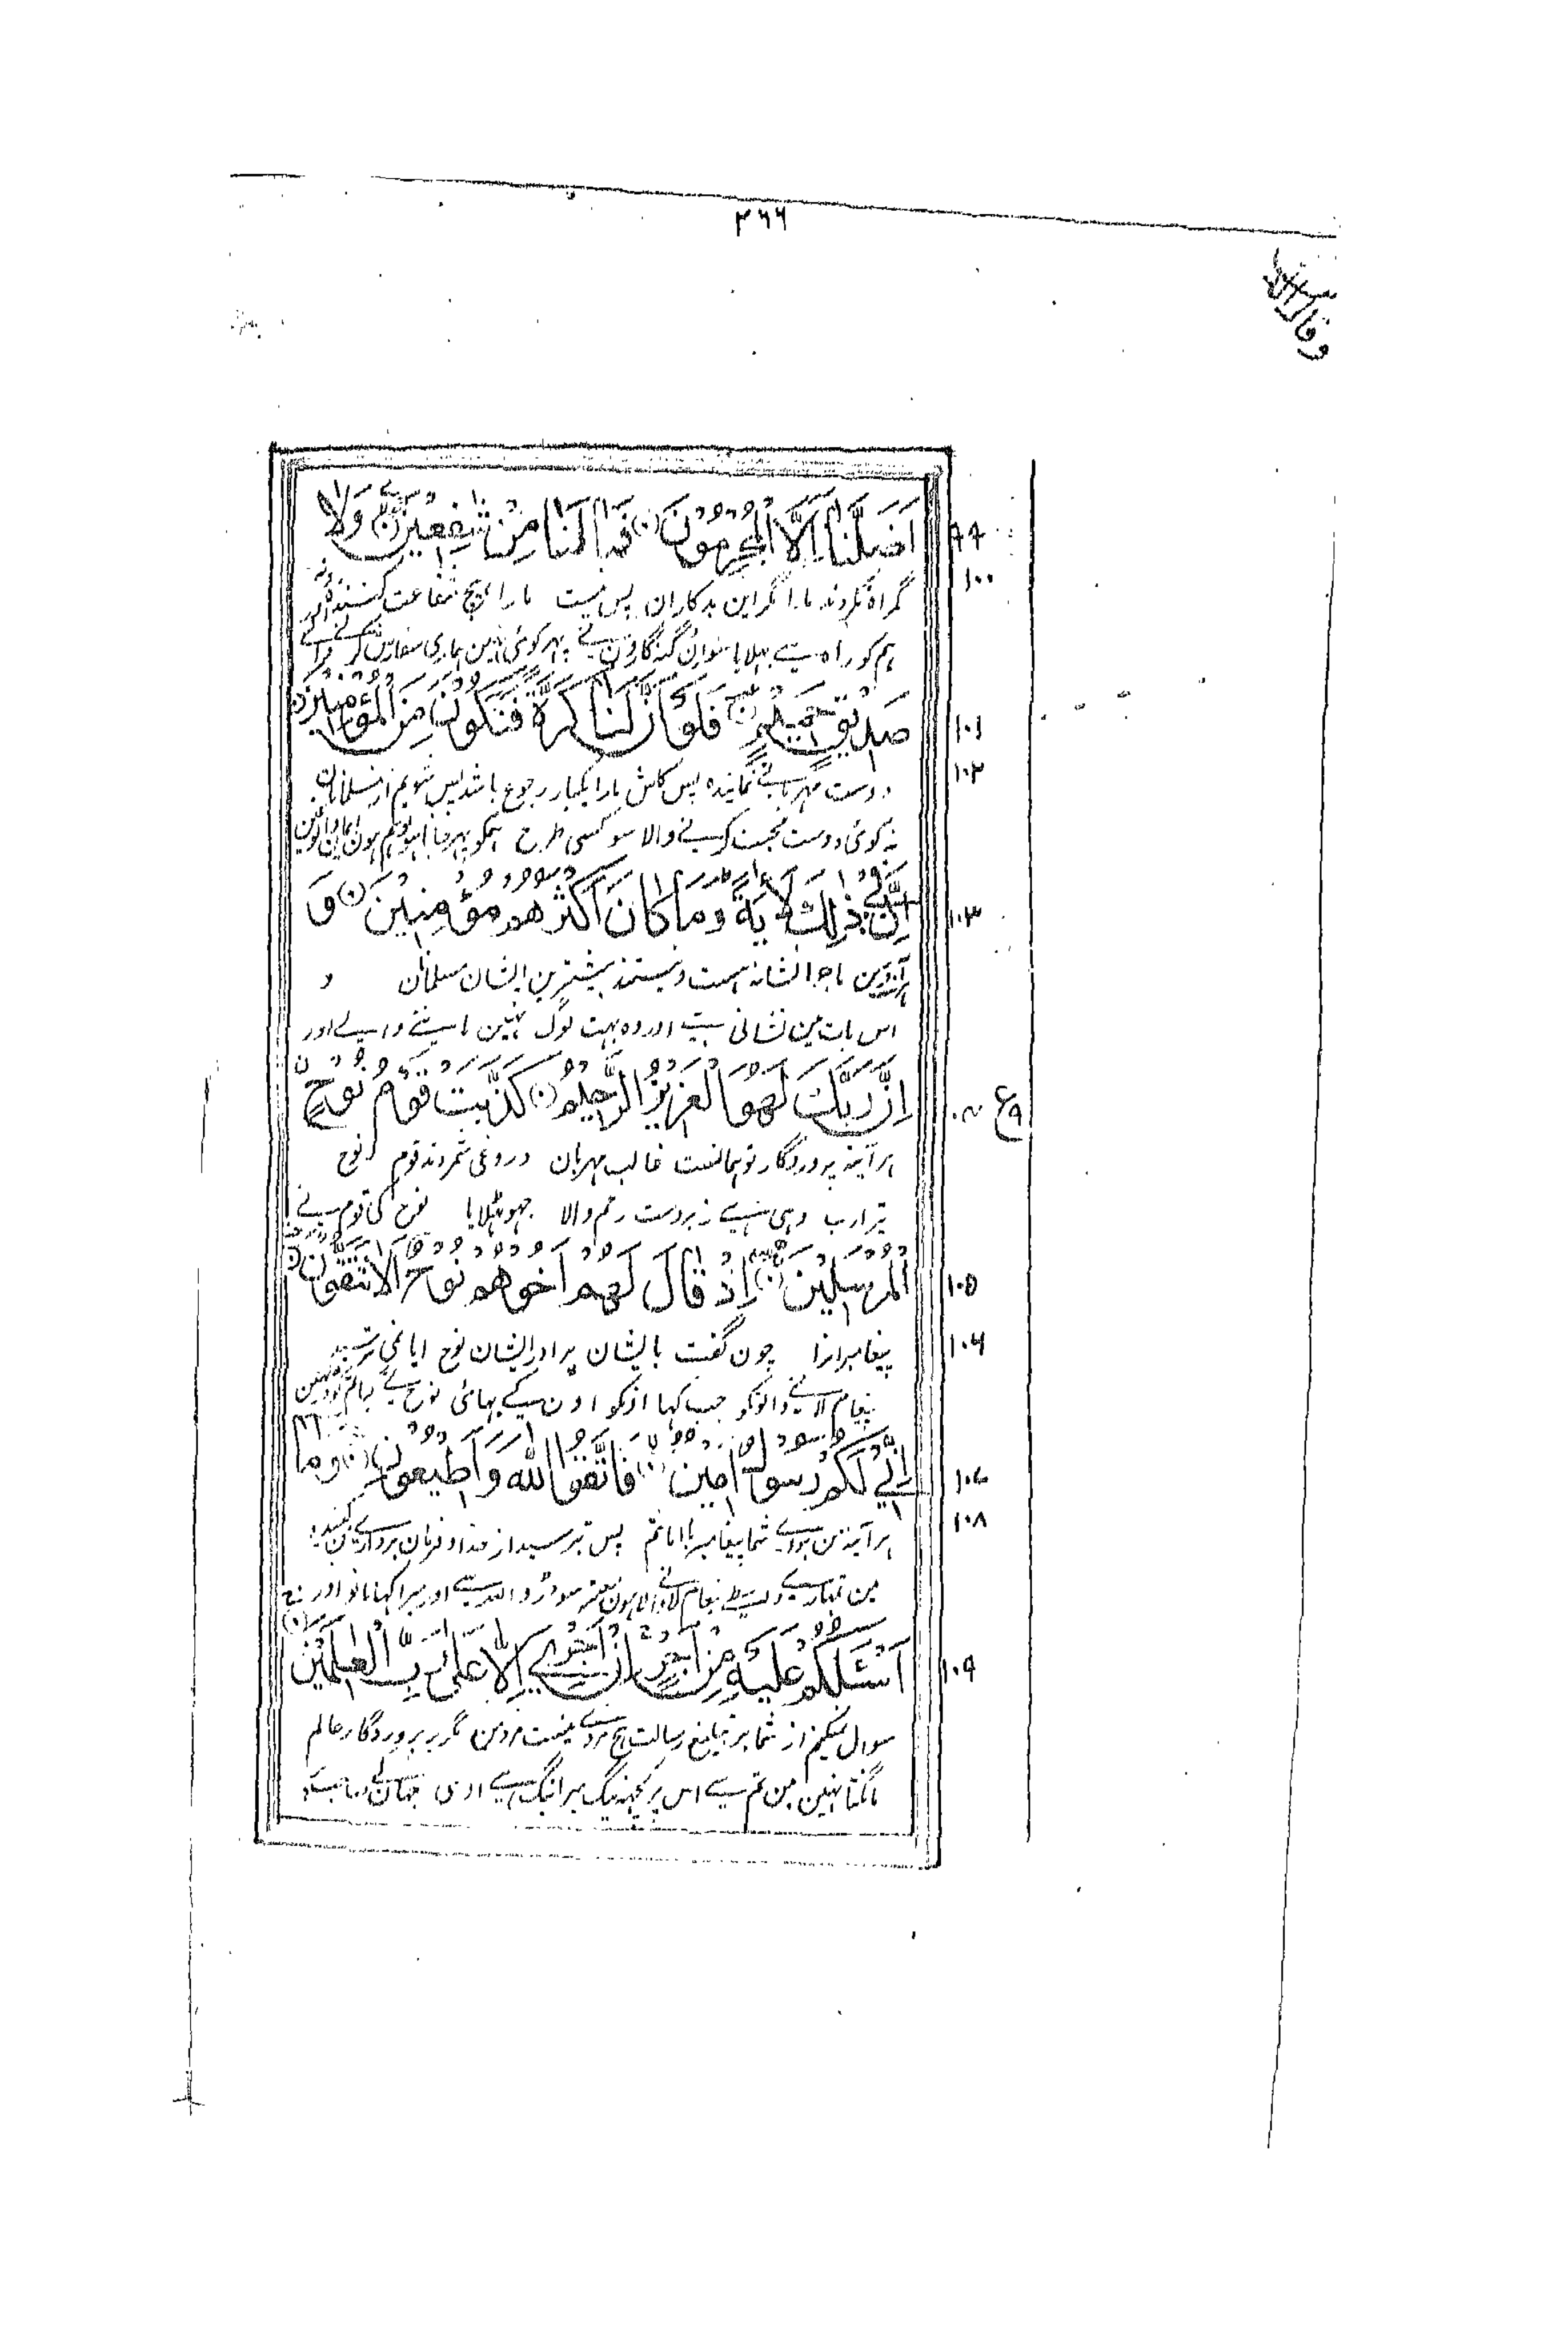 ٣٦٦
وقال الذین
اَضَلَّنَا اِلَّا الْمُجْرِمُوْنَ فَمَا لَنَا مِنْ شٰفِعِیْنَ وَلَا
٩٩
١٠٠
گمراہ نکردند مارا مگر این بدکاران پس نیست مارا ہیچ شفاعت کنندہ
ہم کو راہ سے بہلایا سوان گنہگارون نے پہر کوئی نہین ہماری سفارش کرنے
صَدِیْقٍ حَمِیْمٍ فَلَوْ اَنَّ لَنَا کَرَّةً فَنَکُوْنَ مِنَ الْمُؤْمِنِیْنَ
١٠١
١٠٢
دوست مہربانے نمایندہ پس کاش مارا یکبار رجوع باشد پس شویم از مسلمانان
نہ کوئی دوست محبت کرنے والا سو کسی طرح ہمکو پہر جانا ہو تو ہم ہون
اِنَّ فِیْ ذٰلِكَ لَاٰیَةً وَمَا کَانَ اَکْثَرُهُمْ مُؤْمِنِیْنَ وَ
١٠٣
ہرآئینہ درین ماجرا نشانہ است ونیستند بیشترین ایشان مسلمانان و
اس بات مین نشانی ہے اور وہ بہت لوگ نہین ماننے والے اور
اِنَّ رَبَّكَ لَهُوَ الْعَزِیْزُ الرَّحِیْمُ کَذَّبَتْ قَوْمُ نُوْحٍ
١٠٤
ع ٩
ہرآئینہ پروردگار تو ہمانست غالب مہربان دروغی شمردند قوم نوح
تیرا رب وہی ہے زبردست رحم والا جہوٹھلایا نوح کی قوم نے
الْمُرْسَلِیْنَ اِذْ قَالَ لَهُمْ اَخُوْهُمْ نُوْحٌ اَلَا تَتَّقُوْنَ
١٠٥
١٠٦
پیغامبرانرا چون گفت بایشان برادر ایشان نوح ایا نمی ترسید
پیغام لانے والونکو جب کہا انکو اون کے بہائی نوح نے
اِنِّیْ لَکُمْ رَسُوْلٌ اَمِیْنٌ فَاتَّقُوا اللّٰهَ وَاَطِیْعُوْنِ وَمَا
١٠٧
١٠٨
ہرآئینہ من براے شما پیغامبر باامانتم پس بترسید از خدا و فرمان برداری من کنید
مین تمہارے واسطے پیغام لانے والا ہون معتبر سو ڈرو اللہ سے اور میرا کہا مانو اور
اَسْـَٔلُکُمْ عَلَیْهِ مِنْ اَجْرٍ اِنْ اَجْرِیَ اِلَّا عَلٰی رَبِّ الْعٰلَمِیْنَ
١٠٩
سوال نمیکنم از شما بر تبلیغ رسالت ہیچ مزدے نیست مزد من مگر بر پروردگار عالم
مانگتا نہین مین تم سے اس پر کچہہ نیگ میرا نیگ ہے اوسی جہان کے صاحب